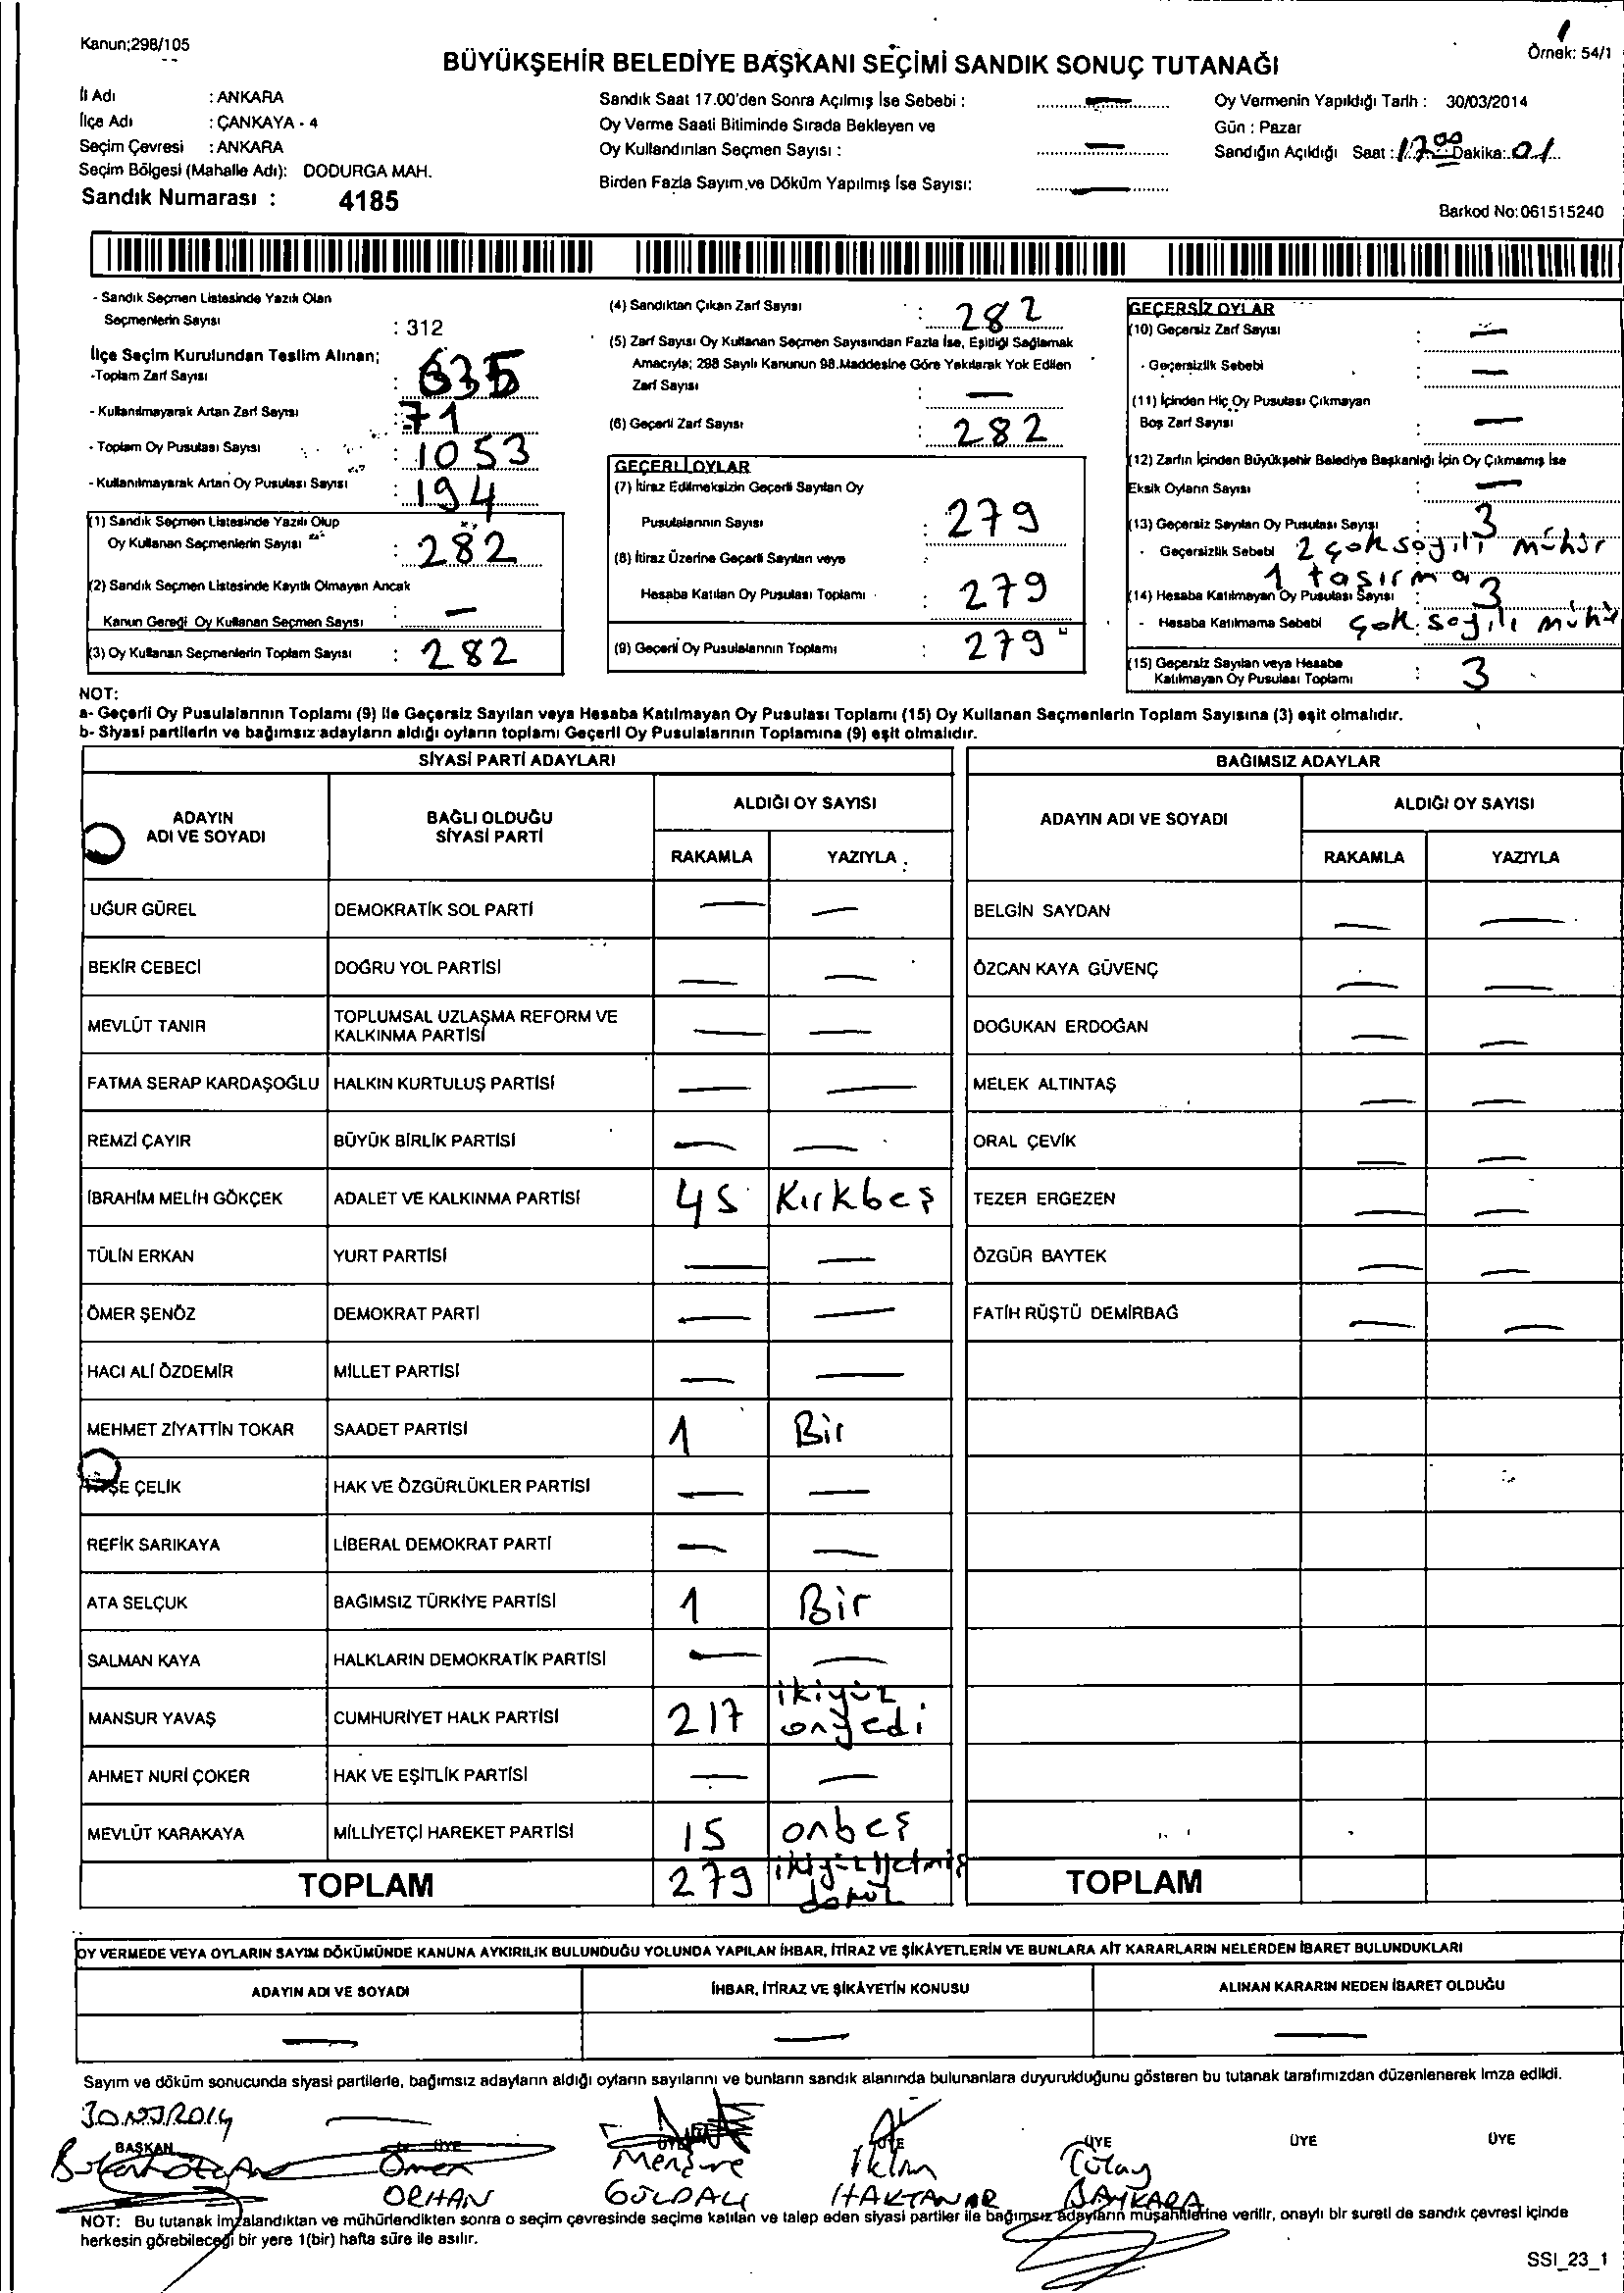 Kanun;298/105
Örnek: 54/1
BÜYÜKŞEHİR BELEDİYE BAŞKANI SEÇİMİ SANDIK SONUÇ TUTANAĞI
İl Adı : ANKARA
İlçe Adı : ÇANKAYA - 4
Seçim Çevresi : ANKARA
Seçim Bölgesi (Mahalle Adı): DODURGA MAH.
Sandık Numarası : 4185
Sandık Saat 17.00'den Sonra Açılmış İse Sebebi : —
Oy Verme Saati Bitiminde Sırada Bekleyen ve
Oy Kullandırılan Seçmen Sayısı : —
Birden Fazla Sayım ve Döküm Yapılmış İse Sayısı: —
Oy Vermenin Yapıldığı Tarih : 30/03/2014
Gün : Pazar
Sandığın Açıldığı Saat : 17.00 Dakika: 01
Barkod No: 061515240
- Sandık Seçmen Listesinde Yazılı Olan
Seçmenlerin Sayısı : 312
İlçe Seçim Kurulundan Teslim Alınan;
-Toplam Zarf Sayısı : 635
- Kullanılmayarak Artan Zarf Sayısı : 71
- Toplam Oy Pusulası Sayısı : 1053
- Kullanılmayarak Artan Oy Pusulası Sayısı : 194
(1) Sandık Seçmen Listesinde Yazılı Olup
Oy Kullanan Seçmenlerin Sayısı : 282
(2) Sandık Seçmen Listesinde Kayıtlı Olmayan Ancak
Kanun Gereği Oy Kullanan Seçmen Sayısı : —
(3) Oy Kullanan Seçmenlerin Toplam Sayısı : 282
(4) Sandıktan Çıkan Zarf Sayısı : 282
(5) Zarf Sayısı Oy Kullanan Seçmen Sayısından Fazla İse, Eşitliği Sağlamak
Amacıyla; 298 Sayılı Kanunun 98.Maddesine Göre Yakılarak Yok Edilen
Zarf Sayısı : —
(6) Geçerli Zarf Sayısı : 282
GEÇERLİ OYLAR
(7) İtiraz Edilmeksizin Geçerli Sayılan Oy
Pusulalarının Sayısı : 279
(8) İtiraz Üzerine Geçerli Sayılan veya :
Hesaba Katılan Oy Pusulası Toplamı : 279
(9) Geçerli Oy Pusulalarının Toplamı : 279
GEÇERSİZ OYLAR
(10) Geçersiz Zarf Sayısı : —
- Geçersizlik Sebebi : —
(11) İçinden Hiç Oy Pusulası Çıkmayan
Boş Zarf Sayısı : —
(12) Zarfın İçinden Büyükşehir Belediye Başkanlığı İçin Oy Çıkmamış İse
Eksik Oyların Sayısı : —
(13) Geçersiz Sayılan Oy Pusulası Sayışı : 3
- Geçersizlik Sebebi 2 çok sayılı mühür
1 taşırma
(14) Hesaba Katılmayan Oy Pusulası Sayısı : 3
- Hesaba Katılmama Sebebi çok sayılı mühü
(15) Geçersiz Sayılan veya Hesaba
Katılmayan Oy Pusulası Toplamı : 3
NOT:
a- Geçerli Oy Pusulalarının Toplamı (9) ile Geçersiz Sayılan veya Hesaba Katılmayan Oy Pusulası Toplamı (15) Oy Kullanan Seçmenlerin Toplam Sayısına (3) eşit olmalıdır.
b- Siyasi partilerin ve bağımsız adayların aldığı oyların toplamı Geçerli Oy Pusulalarının Toplamına (9) eşit olmalıdır.
SİYASİ PARTİ ADAYLARI BAĞIMSIZ ADAYLAR
ADAYIN ADI VE SOYADI BAĞLI OLDUĞU SİYASİ PARTİ ALDIĞI OY SAYISI ADAYIN ADI VE SOYADI ALDIĞI OY SAYISI
RAKAMLA YAZIYLA RAKAMLA YAZIYLA
UĞUR GÜREL DEMOKRATİK SOL PARTİ — — BELGİN SAYDAN — —
BEKİR CEBECİ DOĞRU YOL PARTİSİ — — ÖZCAN KAYA GÜVENÇ — —
MEVLÜT TANIR TOPLUMSAL UZLAŞMA REFORM VE KALKINMA PARTİSİ — — DOĞUKAN ERDOĞAN — —
FATMA SERAP KARDAŞOĞLU HALKIN KURTULUŞ PARTİSİ — — MELEK ALTINTAŞ — —
REMZİ ÇAYIR BÜYÜK BİRLİK PARTİSİ — — ORAL ÇEVİK — —
İBRAHİM MELİH GÖKÇEK ADALET VE KALKINMA PARTİSİ 45 Kırkbeş TEZER ERGEZEN — —
TÜLİN ERKAN YURT PARTİSİ — — ÖZGÜR BAYTEK — —
ÖMER ŞENÖZ DEMOKRAT PARTİ — — FATİH RÜŞTÜ DEMİRBAĞ — —
HACI ALİ ÖZDEMİR MİLLET PARTİSİ — —
MEHMET ZİYATTİN TOKAR SAADET PARTİSİ 1 Bir
ŞE ÇELİK HAK VE ÖZGÜRLÜKLER PARTİSİ — —
REFİK SARIKAYA LİBERAL DEMOKRAT PARTİ — —
ATA SELÇUK BAĞIMSIZ TÜRKİYE PARTİSİ 1 Bir
SALMAN KAYA HALKLARIN DEMOKRATİK PARTİSİ — —
MANSUR YAVAŞ CUMHURİYET HALK PARTİSİ 217 ikiyüz onyedi
AHMET NURİ ÇOKER HAK VE EŞİTLİK PARTİSİ — —
MEVLÜT KARAKAYA MİLLİYETÇİ HAREKET PARTİSİ 15 onbeş
TOPLAM 279 ikiyüzyetmiş dokuz TOPLAM
OY VERMEDE VEYA OYLARIN SAYIM DÖKÜMÜNDE KANUNA AYKIRILIK BULUNDUĞU YOLUNDA YAPILAN İHBAR, İTİRAZ VE ŞİKÂYETLERİN VE BUNLARA AİT KARARLARIN NELERDEN İBARET BULUNDUKLARI
ADAYIN ADI VE SOYADI İHBAR, İTİRAZ VE ŞİKÂYETİN KONUSU ALINAN KARARIN NEDEN İBARET OLDUĞU
— — —
Sayım ve döküm sonucunda siyasi partilerle, bağımsız adayların aldığı oyların sayılarını ve bunların sandık alanında bulunanlara duyurulduğunu gösteren bu tutanak tarafımızdan düzenlenerek imza edildi.
30.03.2014
BAŞKAN ÜYE ÜYE ÜYE ÜYE ÜYE ÜYE
Ömer Tülay
ORHAN HAKTANIR BAYKARA
NOT: Bu tutanak imzalandıktan ve mühürlendikten sonra o seçim çevresinde seçime katılan ve talep eden siyasi partiler ile bağımsız adayların müşahitlerine verilir, onaylı bir sureti de sandık çevresi içinde
herkesin görebileceği bir yere 1(bir) hafta süre ile asılır.
SSI_23_1